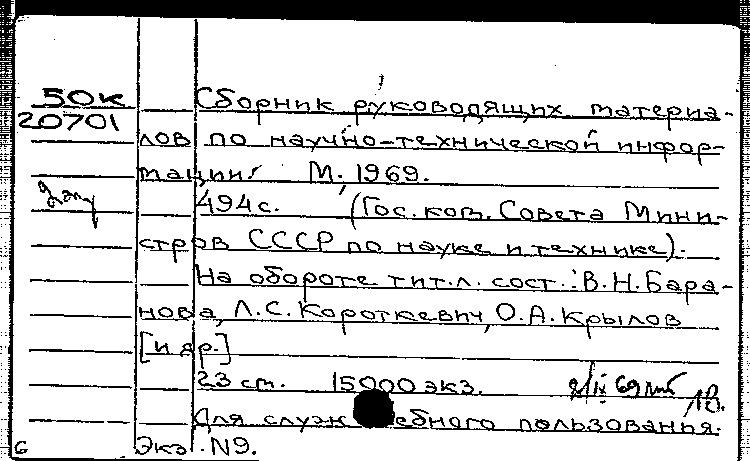 50к Сборник руководящих материа-
20701 лов по научно-технической инфор-
мации. М., 1969.
494 с. (Гос. ком. Совета Мини-
стров СССР по науке и технике).
На обороте тит. л. сост.: В.Н. Бара-
нова, Л.С. Короткевич, О.А. Крылов
[и др.]
23 см. 15000 экз.
Для служебного пользования.
6 Экз. N9.